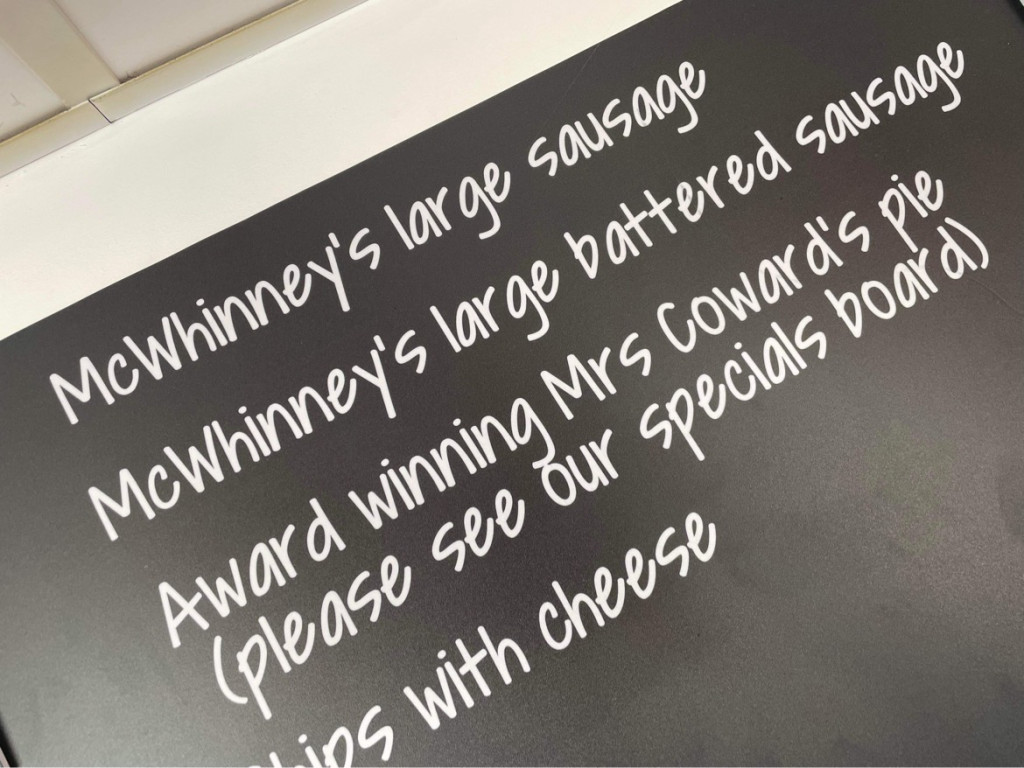 McWhinney's large sausage
McWhinney's large battered sausage
Award winning Mrs Coward's pie
(please see our specials board)
chips with cheese